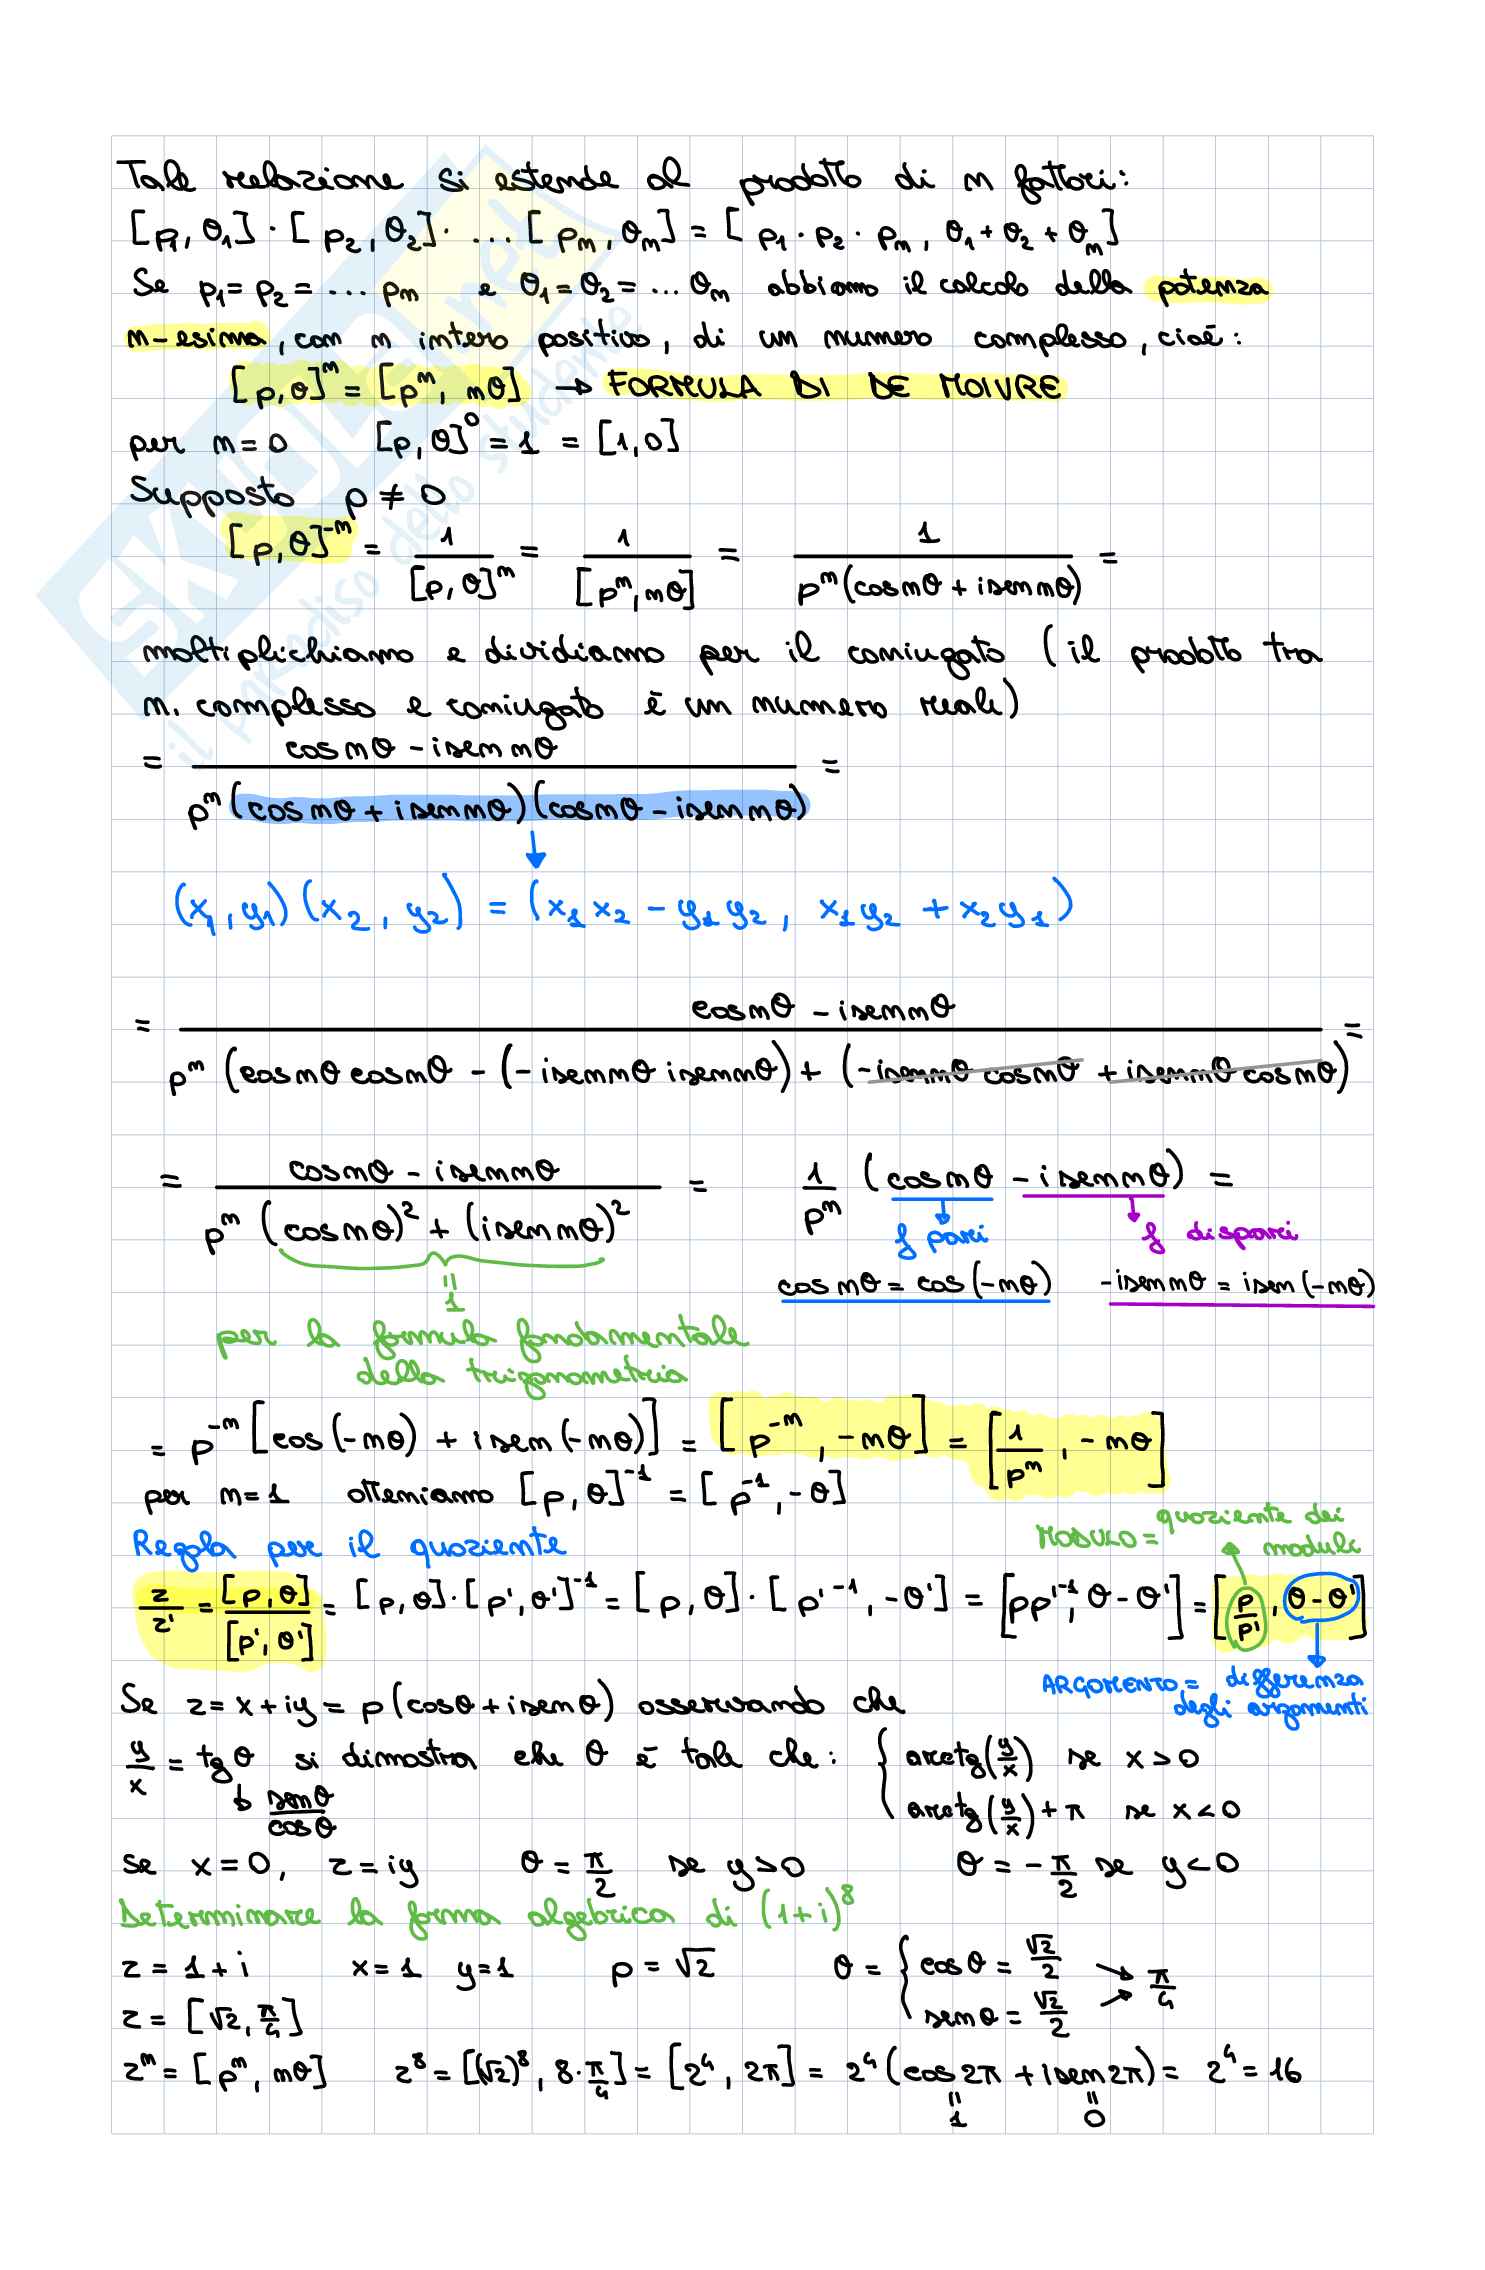 Tale relazione si estende al prodotto di n fattori:
[ρ₁, θ₁] · [ρ₂, θ₂] · ... [ρₙ, θₙ] = [ρ₁ · ρ₂ · ρₙ, θ₁ + θ₂ + θₙ]
Se ρ₁ = ρ₂ = ... ρₙ e θ₁ = θ₂ = ... θₙ abbiamo il calcolo della potenza
n-esima, con n intero positivo, di un numero complesso, cioè:
[ρ, θ]ⁿ = [ρⁿ, nθ] → FORMULA DI DE MOIVRE
per n = 0 [ρ, θ]⁰ = 1 = [1, 0]
Supposto ρ ≠ 0
[ρ, θ]⁻ⁿ = 1/[ρ, θ]ⁿ = 1/[ρⁿ, nθ] = 1/ρⁿ(cos nθ + i sen nθ) =
moltiplichiamo e dividiamo per il coniugato (il prodotto tra
n. complesso e coniugato è un numero reale)
= cos nθ - i sen nθ / ρⁿ(cos nθ + i sen nθ)(cos nθ - i sen nθ) =
↓
(x₁, y₁)(x₂, y₂) = (x₁x₂ - y₁y₂, x₁y₂ + x₂y₁)
= cos nθ - i sen nθ / ρⁿ(cos nθ cos nθ - (- i sen nθ i sen nθ) + (- i sen nθ cos nθ + i sen nθ cos nθ) =
= cos nθ - i sen nθ / ρⁿ(cos nθ)² + (i sen nθ)² = 1/ρⁿ (cos nθ - i sen nθ) =
f pari f dispari
= 1 cos nθ = cos(-nθ) -i sen nθ = i sen(-nθ)
per la formula fondamentale
della trigonometria
= ρ⁻ⁿ [cos(-nθ) + i sen(-nθ)] = [ρ⁻ⁿ, -nθ] = [1/ρⁿ, -nθ]
per n = 1 otteniamo [ρ, θ]⁻¹ = [ρ⁻¹, -θ]
MODULO = quoziente dei moduli
Regola per il quoziente
z/z' = [ρ, θ]/[ρ', θ'] = [ρ, θ] · [ρ', θ']⁻¹ = [ρ, θ] · [ρ'⁻¹, -θ'] = [ρρ'⁻¹, θ - θ'] = [ρ/ρ', θ - θ']
ARGOMENTO = differenza degli argomenti
Se z = x + iy = ρ(cosθ + i senθ) osservando che
y/x = tgθ si dimostra che θ è tale che: { arctg(y/x) se x > 0
↳ senθ/cosθ arctg(y/x) + π se x < 0
Se x = 0, z = iy θ = π/2 se y > 0 θ = -π/2 se y < 0
Determinare la forma algebrica di (1 + i)⁸
z = 1 + i x = 1 y = 1 ρ = √2 θ = { cosθ = √2/2 senθ = √2/2 → π/4
z = [√2, π/4]
zⁿ = [ρⁿ, nθ] z⁸ = [(√2)⁸, 8·π/4] = [2⁴, 2π] = 2⁴(cos 2π + i sen 2π) = 2⁴ = 16
= 1 = 0
SKUOLA.net
il paradiso dello studente